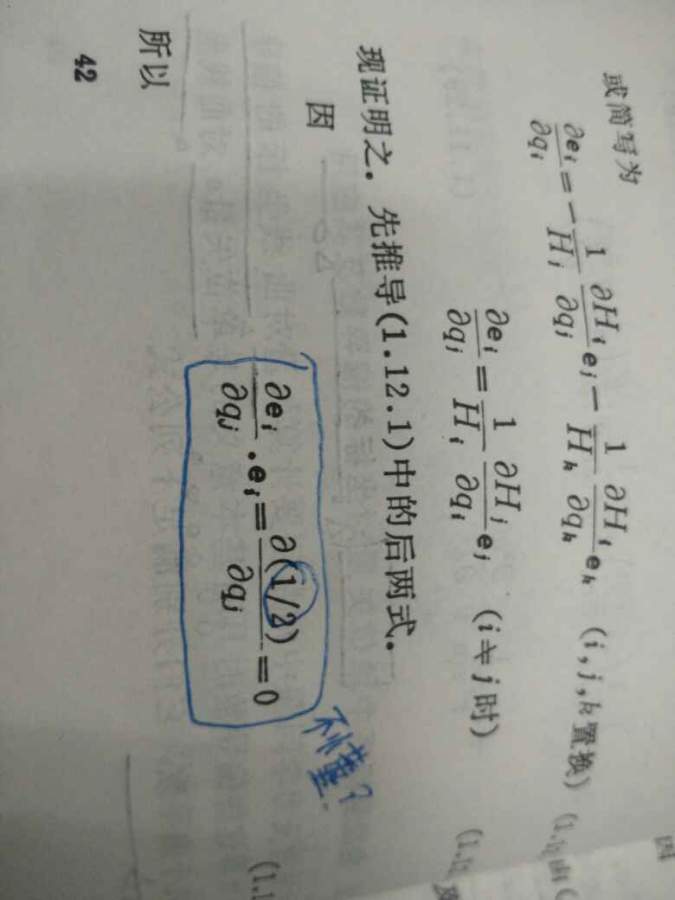 或简写为
∂eᵢ/∂qᵢ = −(1/Hⱼ)(∂Hᵢ/∂qⱼ)eⱼ − (1/Hₖ)(∂Hᵢ/∂qₖ)eₖ (i,j,k置换)
∂eᵢ/∂qⱼ = (1/Hᵢ)(∂Hⱼ/∂qᵢ)eⱼ (i≠j时)
现证明之。先推导(1.12.1)中的后两式。
因
∂eᵢ/∂qⱼ · eᵢ = ∂(1/2)/∂qⱼ = 0
不懂?
所以
42